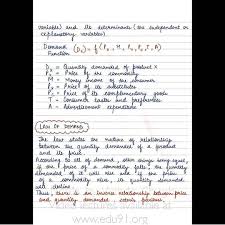 variable) and its determinants (the independent or
explanatory variables).
Demand
Function (Dx) = f (Px, M, Po, Pc, T, A)
Dx = Quantity demanded of product X
Px = Price of the commodity
M = Money income of the consumer
Po = Price of its substitutes
Pc = Price of its complementary goods
T = Consumer taste and preferences
A = Advertisement expenditure
LAW OF DEMAND
The law states the nature of relationship
between the quantity demanded of a product
and its price.
According to all of demand, other things being equal,
if the price of a commodity falls, the quantity
demanded of it will rise and if the price
of a commodity rise, its quantity demanded
will decline.
Thus, there is an inverse relationship between price
and quantity demanded, ceteris paribus.
www.edu91.org